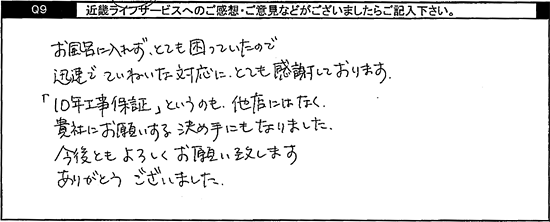 Q9 近畿ライフサービスへのご感想・ご意見などがございましたらご記入下さい。
お風呂に入れず、とても困っていたので
迅速で ていねいた対応に、とても感謝しております。
「10年工事保証」というのも、他店にはなく、
貴社にお願いする 決め手にもなりました。
今後とも よろしく お願い致します
ありがとう ございました。